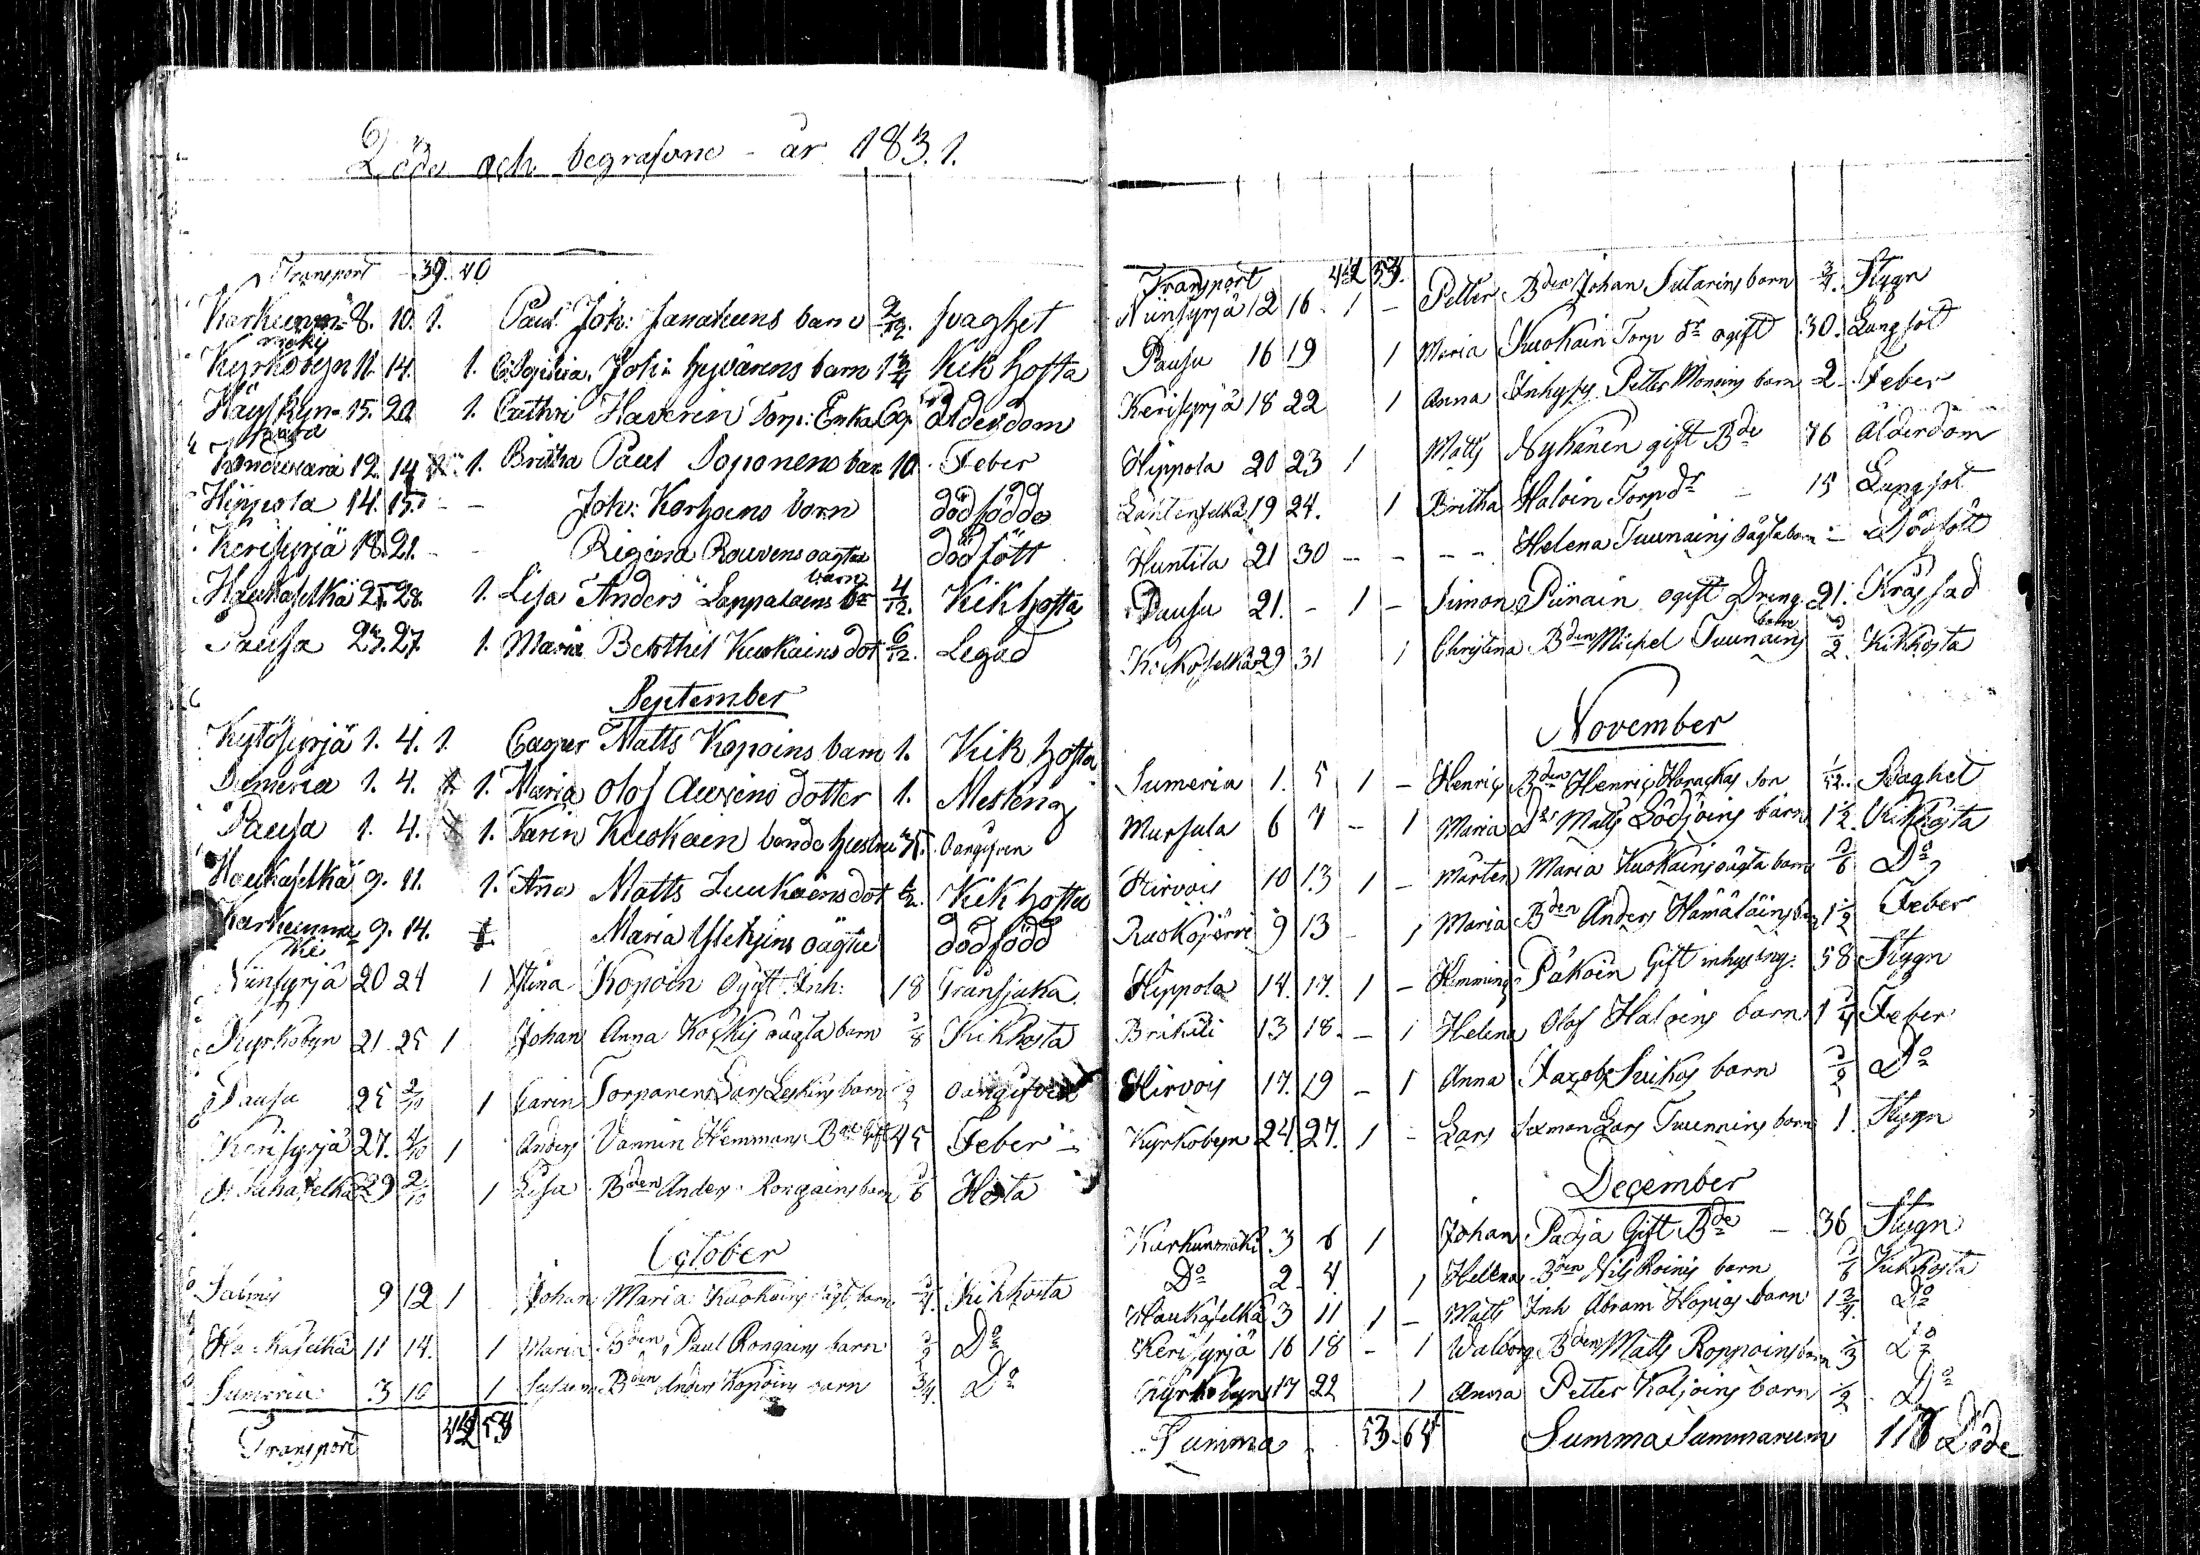 Döde och begrafvne - år 1831.
Transport 39. 40
Karkunmäki 8. 10. 1. Paul Joh: barn 2/12. svaghet
Kyrkobyn 11. 14. 1. Joh: Hyvärens barn 1 3/4 Kik hosta
15. 20 1. Cathri Haverin Torp: Enka 69. ålderdom
Konduvara 12. 14 1. Britha Paul Soponens bar 10. Feber
Hippola 14. 15. - - Joh: Korhoens barn dödfödde
Kerisyrjä 18. 21. - - Regina Rouvens oägta dödfött
Haukaselkä 25. 28. 1. Lisa Anders Lappalaens barn 4/12. Kikhosta
Pausa 23. 27. 1. Maria Kuokains dot 6/12. Legad
September
Kytösyrjä 1. 4. 1. Casper Matts Kopoins barn 1. Kik hosta
Sumeria 1. 4. 1. Maria Olof Auvens dotter 1. Mesling
Pausa 1. 4. 1. Karin Kuokain bonde hustru 75. Oangifven
Haukaselkä 9. 11. 1. Ana Matts Luukoens dot 1/2. Kikhosta
Karkunmäki 9. 14. Maria oägta dödfödd
Niinsyrjä 20 24 1 Stina Kopoin Ogift Inh: 18 Trånsjuka
Kyrkobyn 21 25 1 Johan Anna Koskis oägta barn Kikhosta
Pausa 25 2/10 1 Carin Torparens Lars barn oangifven
Kerisyrjä 27. 4/10 1 Anders Vannin Hemmans Bde gift 45 Feber -
Haukaselkä 29 2/10 1 Lisa Bden Anders Rongains barn Hosta
October
Salmis 9 12 1 Johan Maria Kuokains oägt barn Kikhosta
Haukaselkä 11 14. 1 Maria Bden Paul Rongains barn Do
Sumeria 3 10 1 Bden Anders Kopoins barn 3/4. Do
Transport 42 53
Transport 42 53.
Niinsyrjä 12 16. 1 - Petter Bden Johan Sutarins barn 3/4. Stygn
Pausa 16 19 1 Maria Kuokain Torp dr ogift 30. Lungsot
Kerisyrjä 18 22 1 Anna Inhyses Petter Monoins barn 2 - Feber
Hippola 20 23 1 Matts Nykänen gift Bde 76 Ålderdom
19 24. 1 Britha Haloin Torp dr - 15 Lungsot
Huntila 21 30 - - - - Helena Tuunains oägta barn - Dödfött
Pausa 21. - 1 - Simon Piirain ogift Dreng 21. Kräfsad
29 31 1 Christina Bden Michel Tuunains barn Kikhosta
November
Sumeria 1. 5 1 - Henric Bden Henric son 1/12. Svaghet
Mursula 6 7 - 1 Maria Matts barn 1 1/2. Kikhosta
Hirvois 10 13 1 - Mårten Maria Kuokains oägta barn Do
Ruokojärvi 9 13 - 1 Maria Bden Anders Hämäläins barn 1 1/2 Feber
Hippola 14. 17. 1 - Hemming Påkoin Gift inhysing: 58 Stygn
13 18 - 1 Helena Olof Haloins barn Feber
Hirvois 17. 19 - 1 Anna Jacob barn Do
Kyrkobyn 24. 27. 1 - Lars Sexman Lars Tuunains barn 1. Stygn
December
Karkunmäki 3 6 1 Johan Padja Gift Bde - 36 Stygn
Do 2 4. 1 Hellena Bden Nils Roinis barn Kikhosta
Haukaselkä 3 11 1 - Matts Inh Abram Hopias barn 1 3/4. Do
Kerisyrjä 16 18 - 1 Walborg Bden Matts Roppoins barn Do
Kyrkobyn 17 22 1 Anna Petter barn 1/2 Do
Summa 53. 64 Summa Summarum Döde